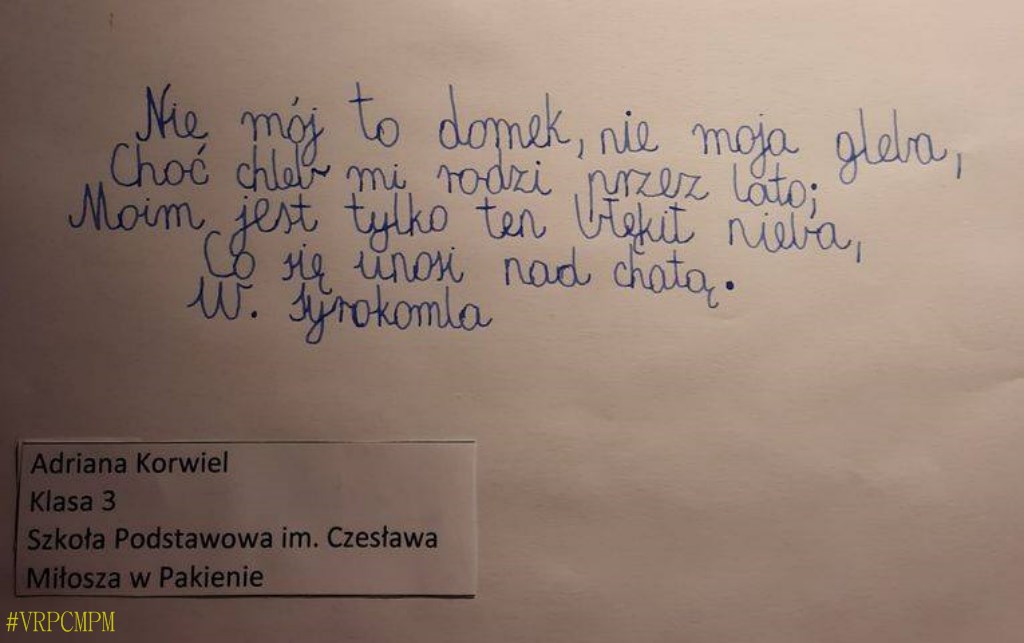 Nie mój to domek, nie moja gleba,
Choć chleb mi rodzi przez lato;
Moim jest tylko ten błękit nieba,
Co się unosi nad chatą.
W. Syrokomla
Adriana Korwiel
Klasa 3
Szkoła Podstawowa im. Czesława
Miłosza w Pakienie
#VRPCMPM